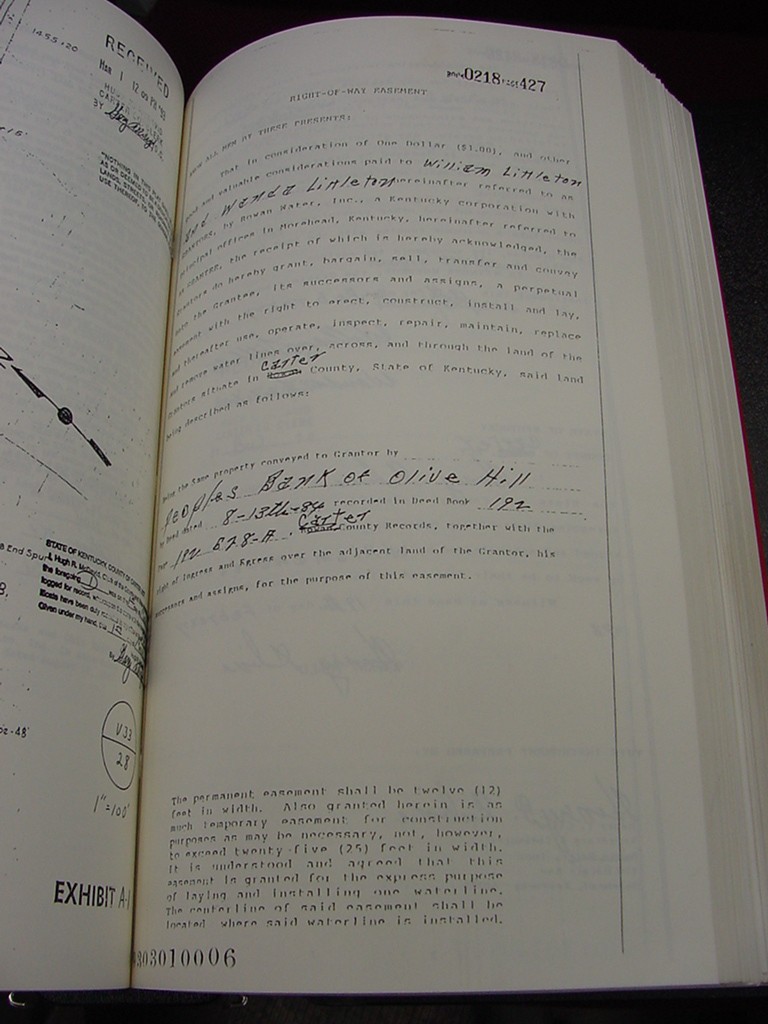 1455+20
RECEIVED
Mar 1 12
BY
"NOTHING IN THIS
AS OR DEEMED TO BE
LANDS, STREETS, OR
USE THEREOF, TO
End Spur
STATE OF KENTUCKY, COUNTY OF
I, Hugh R.
the foregoing
logged for record,
ificate have been duly
Given under my hand, this
V33
28
1"=100'
EXHIBIT A-1
BOOK 0218 PAGE 427
RIGHT-OF-WAY EASEMENT
ALL MEN BY THESE PRESENTS:
That in consideration of One Dollar ($1.00), and other
good and valuable considerations paid to William Littleton
and Wanda Littleton hereinafter referred to as
GRANTORS, by Rowan Water, Inc., a Kentucky corporation with
principal offices in Morehead, Kentucky, hereinafter referred to
as GRANTEE, the receipt of which is hereby acknowledged, the
Grantors do hereby grant, bargain, sell, transfer and convey
unto the Grantee, its successors and assigns, a perpetual
easement with the right to erect, construct, install and lay,
and thereafter use, operate, inspect, repair, maintain, replace
and remove water lines over, across, and through the land of the
Grantors situate in Carter County, State of Kentucky, said land
being described as follows:
Being the Same property conveyed to Grantor by
Peoples Bank of Olive Hill
by Deed dated 8-13th-84 recorded in Deed Book 192
Page 192 678-A. Carter County Records, together with the
right of Ingress and Egress over the adjacent land of the Grantor, his
successors and assigns, for the purpose of this easement.
The permanent easement shall be twelve (12)
feet in width. Also granted herein is as
much temporary easement for construction
purposes as may be necessary, not, however,
to exceed twenty-five (25) feet in width.
It is understood and agreed that this
easement is granted for the express purpose
of laying and installing one waterline.
The centerline of said easement shall be
located where said waterline is installed.
303010006